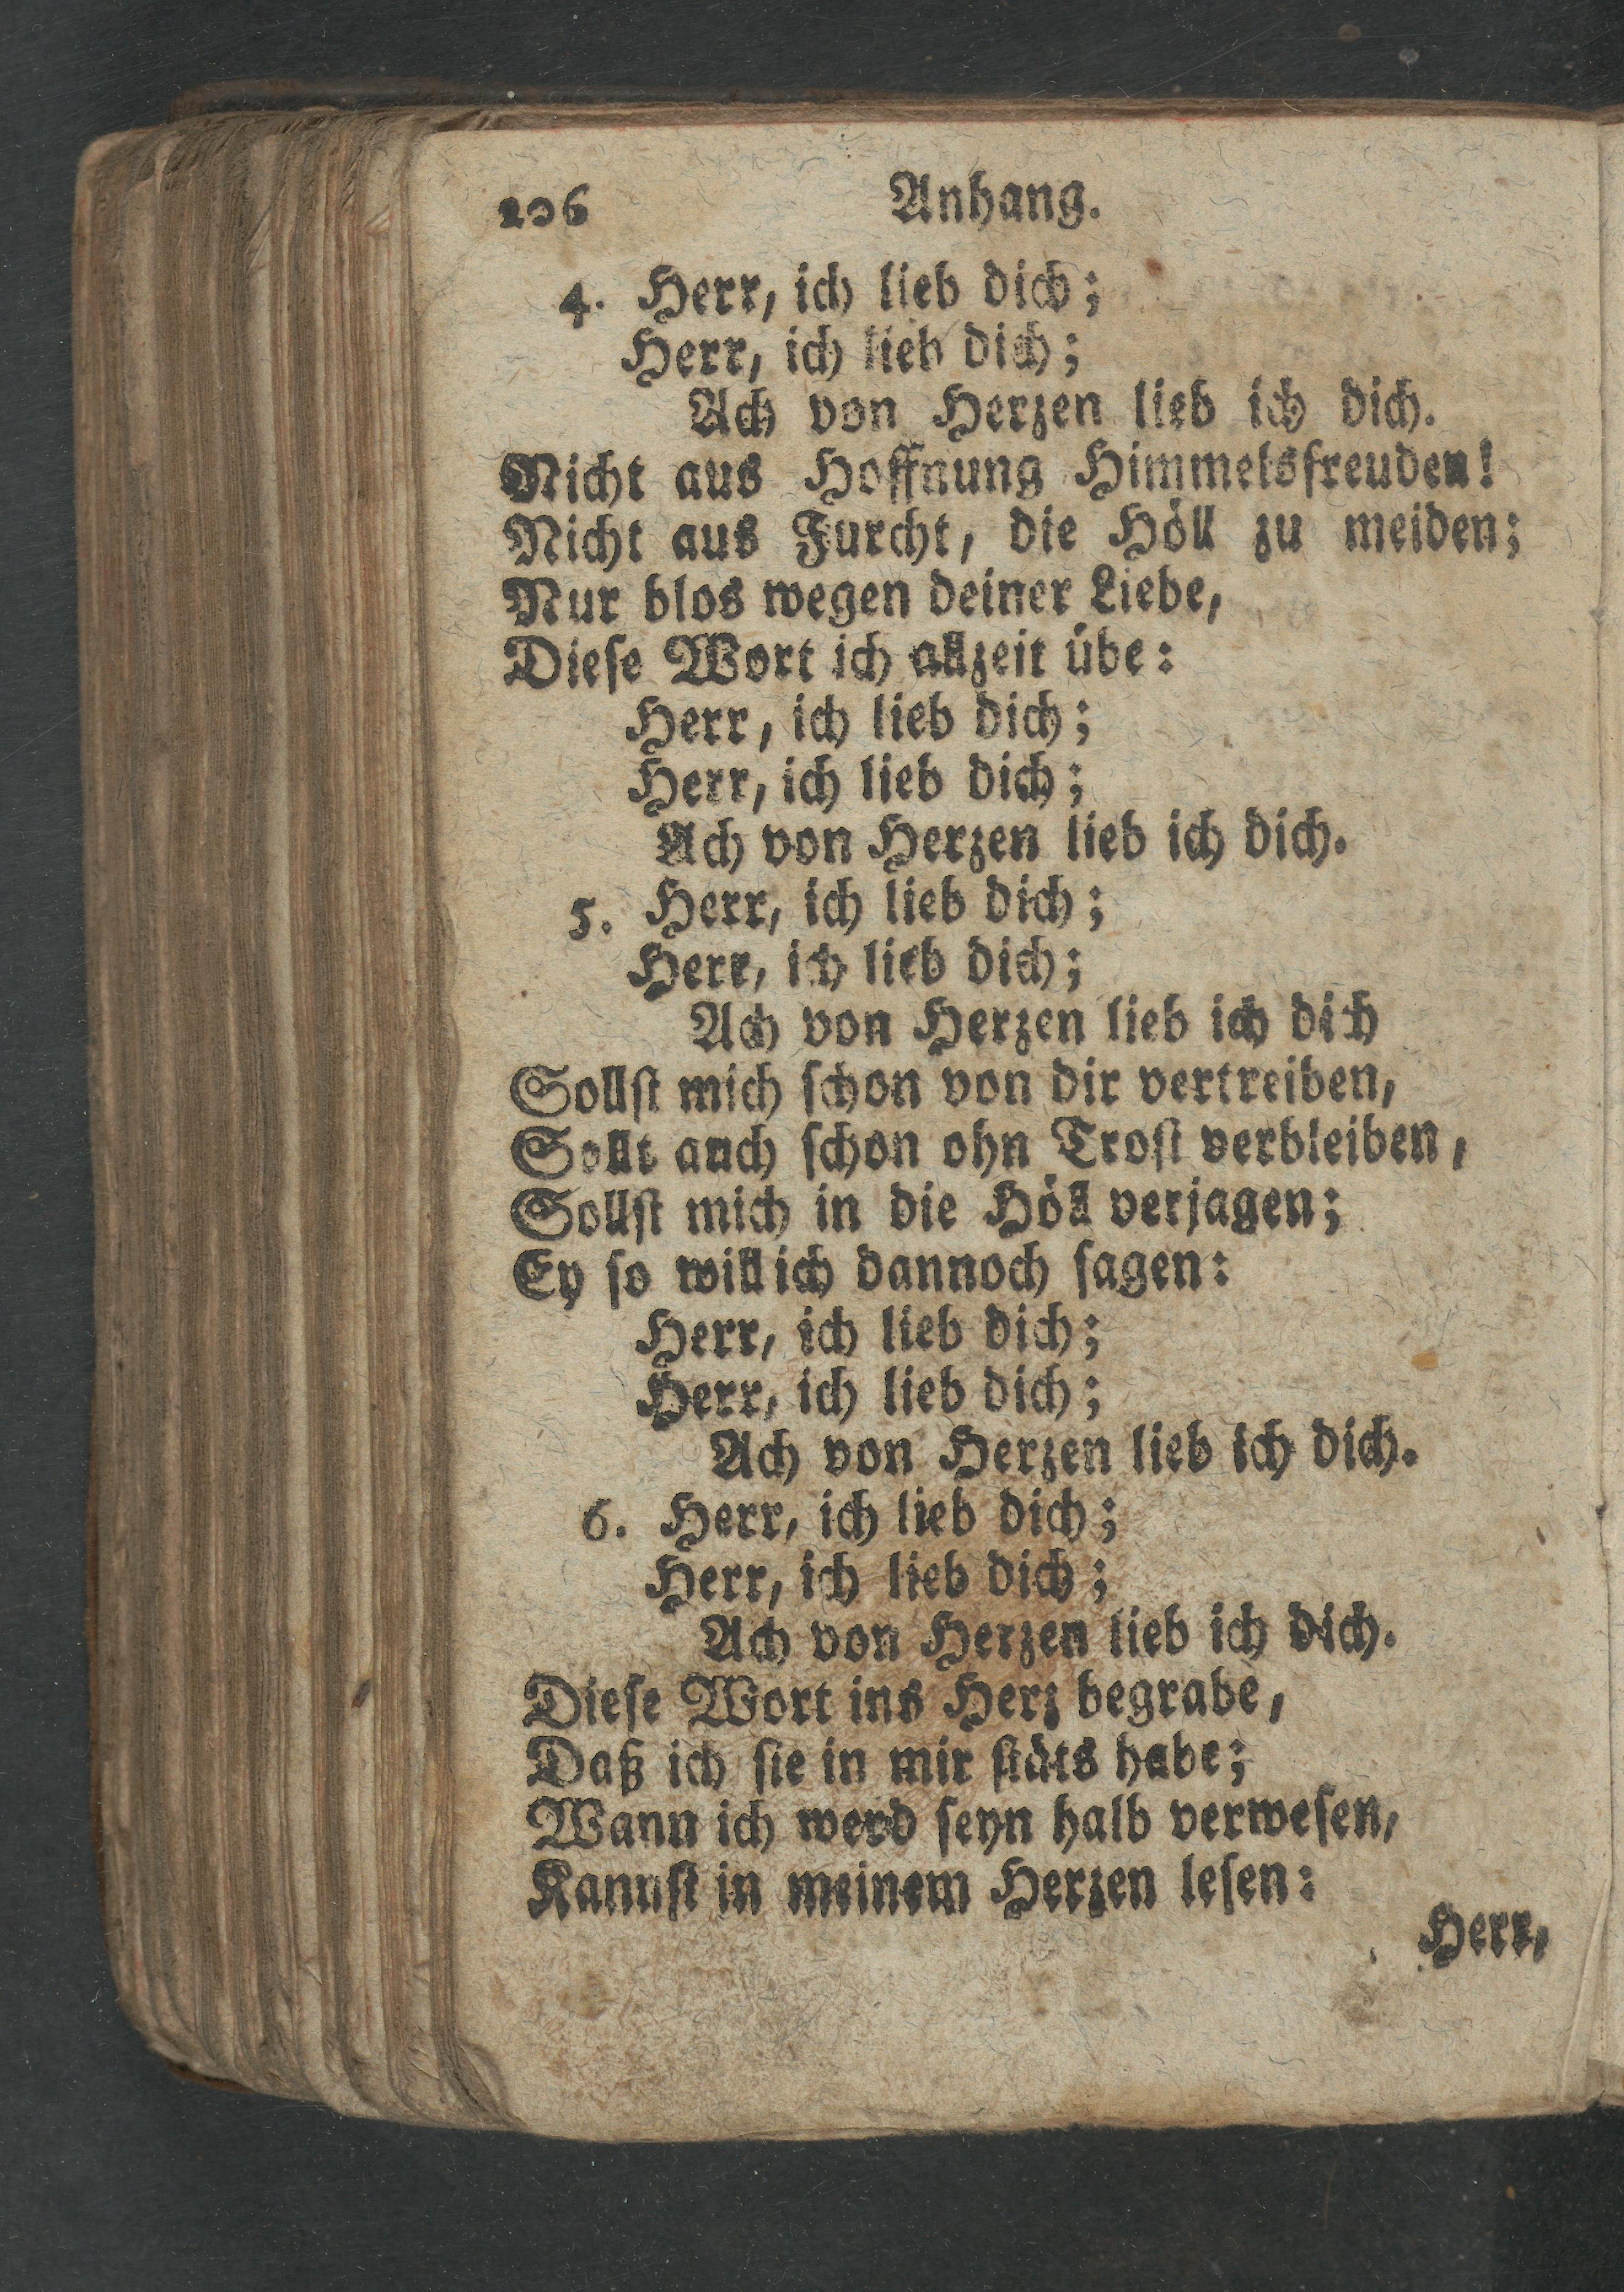 206 Anhang.
4. Herr, ich lieb dich;
Herr, ich lieb dich;
Ach von Herzen lieb ich dich.
Nicht aus Hoffnung Himmelsfreuden!
Nicht aus Furcht, die Höll zu meiden;
Nur blos wegen deiner Liebe,
Dieſe Wort ich allzeit übe:
Herr, ich lieb dich;
Herr, ich lieb dich;
Ach von Herzen lieb ich dich.
5. Herr, ich lieb dich;
Herr, ich lieb dich;
Ach von Herzen lieb ich dich
Sollſt mich ſchon von dir vertreiben,
Sollt auch ſchon ohn Troſt verbleiben,
Sollſt mich in die Höll verjagen;
Ey ſo will ich dannoch ſagen:
Herr, ich lieb dich;
Herr, ich lieb dich;
Ach von Herzen lieb ich dich.
6. Herr, ich lieb dich;
Herr, ich lieb dich;
Ach von Herzen lieb ich dich.
Dieſe Wort ins Herz begrabe,
Daß ich ſie in mir ſtäts habe;
Wann ich werd ſeyn halb verweſen,
Kannſt in meinem Herzen leſen:
Herr,